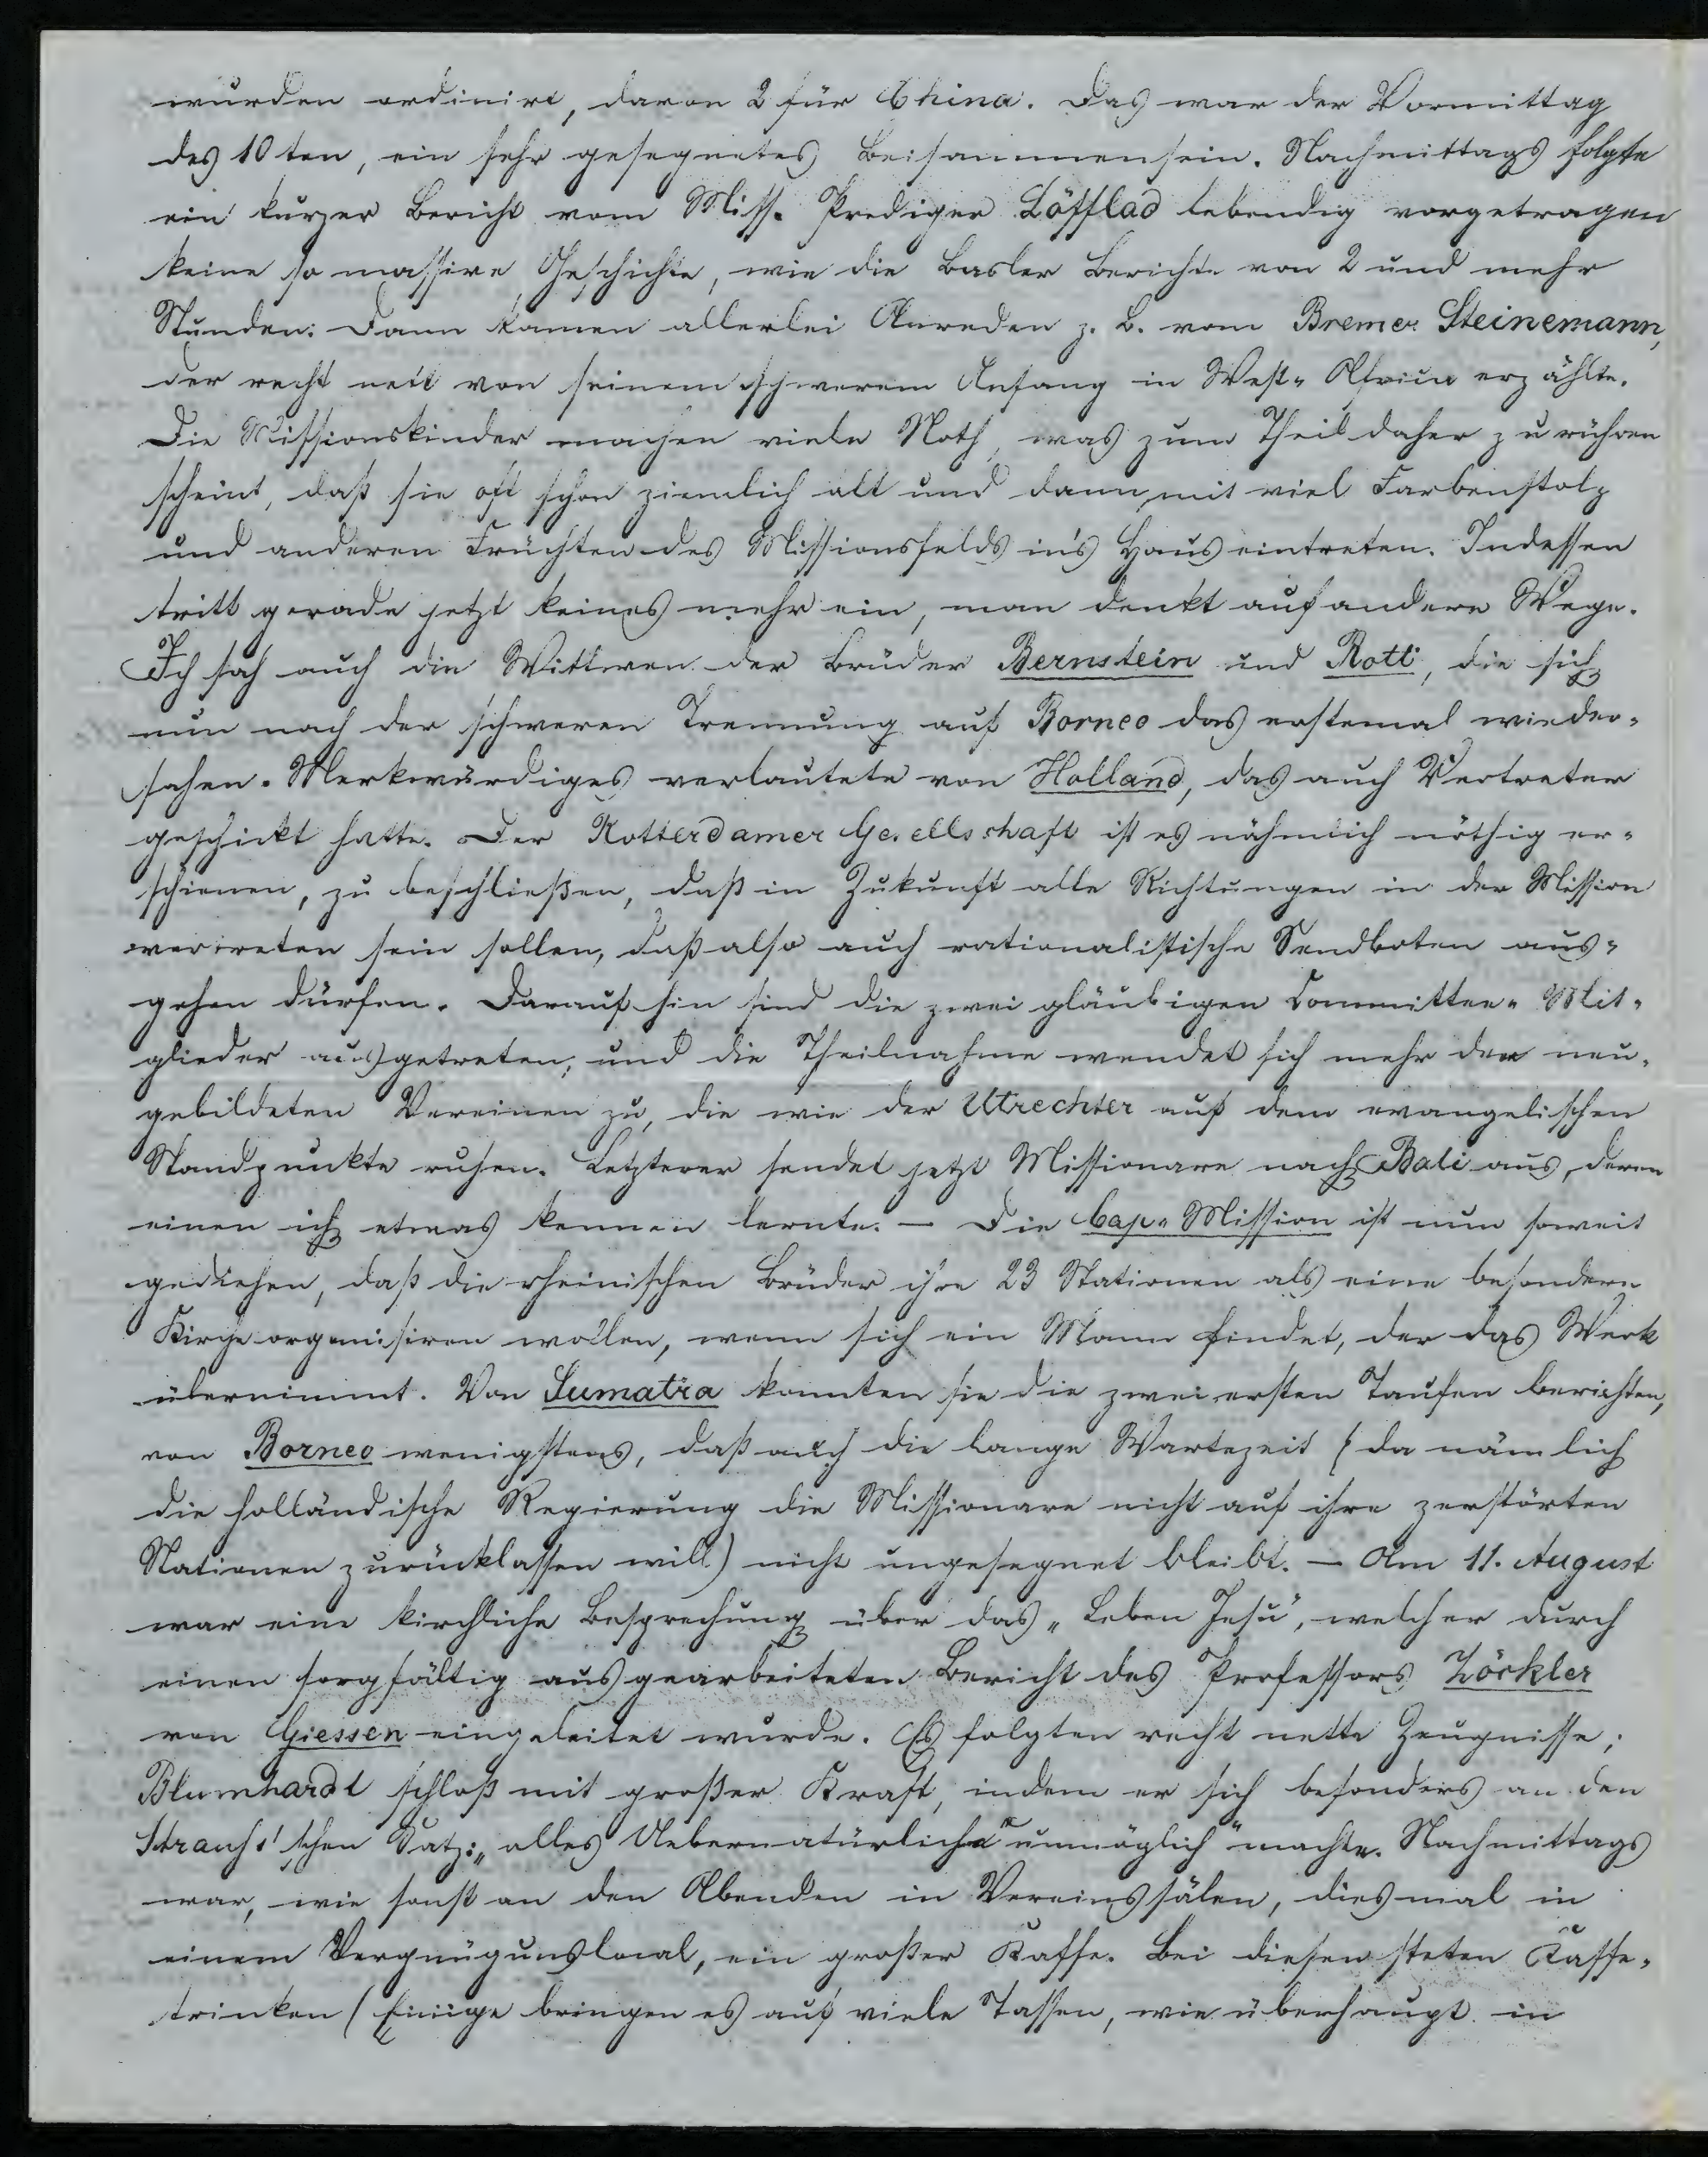 wurden ordinirt, davon 2 für China. Das war der Vormittag
des 10ten, ein sehr gesegnetes Beisammensein. Nachmittags folgte
ein kurzer Bericht vom Miss. Prediger Löfflad lebendig vorgetragen
keine so massive Geschichte, wie die Basler Berichte von 2 und mehr
Stunden. Dann kamen allerlei Anreden z. B. vom Bremer Steinemann,
der recht nett von seinem schweren Anfang in West-Africa erzählte.
Die Missionskinder machen viele Noth, was zum Theil daher zu rühren
scheint, daß sie oft schon ziemlich alt und dann mit viel Farbenstolz
und anderen Früchten des Missionsfelds in's Haus eintreten. Indessen
tritt gerade jetzt keines mehr ein, man denkt auf andere Wege.
Ich sah auch die Wittwen der Brüder Bernstein und Rott, die sich
nun nach der schweren Trennung auf Borneo das erstemal wieder-
sahen. Merkwürdiges verlautete von Holland, das auch Vertreter
geschickt hatte. Der Rotterdamer Gesellschaft ist es nähmlich nöthig er-
schienen, zu beschließen, daß in Zukunft alle Richtungen in der Mission
vertreten sein sollen, daß also auch rationalistische Sendboten aus-
gehen dürfen. Darauf hin sind die zwei gläubigen Committee-Mit-
glieder ausgetreten, und die Theilnahme wendet sich mehr den neu-
gebildeten Vereinen zu, die wie der Utrechter auf dem evangelischen
Standpunkte ruhen. Letzterer sendet jetzt Missionare nach Bali aus, deren
einen ich etwas kennen lernte. — Die Cap-Mission ist nun soweit
gediehen, daß die rheinischen Brüder ihre 23 Stationen als eine besondere
Kirche organisiren wollen, wenn sich ein Mann findet, der das Werk
übernimmt. Von Sumatra konnten sie die zwei ersten Taufen berichten,
von Borneo wenigstens, daß auch die lange Wartezeit (da nämlich
die holländische Regierung die Missionare nicht auf ihre zerstörten
Stationen zurücklassen will) nicht ungesegnet bleibt. — Am 11. August
war eine kirchliche Besprechung über das „Leben Jesu", welcher durch
einen sorgfältig ausgearbeiteten Bericht des Professors Zöckler
von Giessen eingeleitet wurde. Es folgten recht nette Zeugnisse;
Blumhardt schloß mit großer Kraft, indem er sich besonders an den
Strauß'schen Satz: „alles Uebernatürliche unmöglich" machte. Nachmittags
war, wie sonst an den Abenden in Vereinssälen, diesmal in
einem Vergnügunslocal, ein großer Kaffe. Bei diesen steten Kaffe-
trinken (Einige bringen es auf viele Tassen, wie überhaupt in